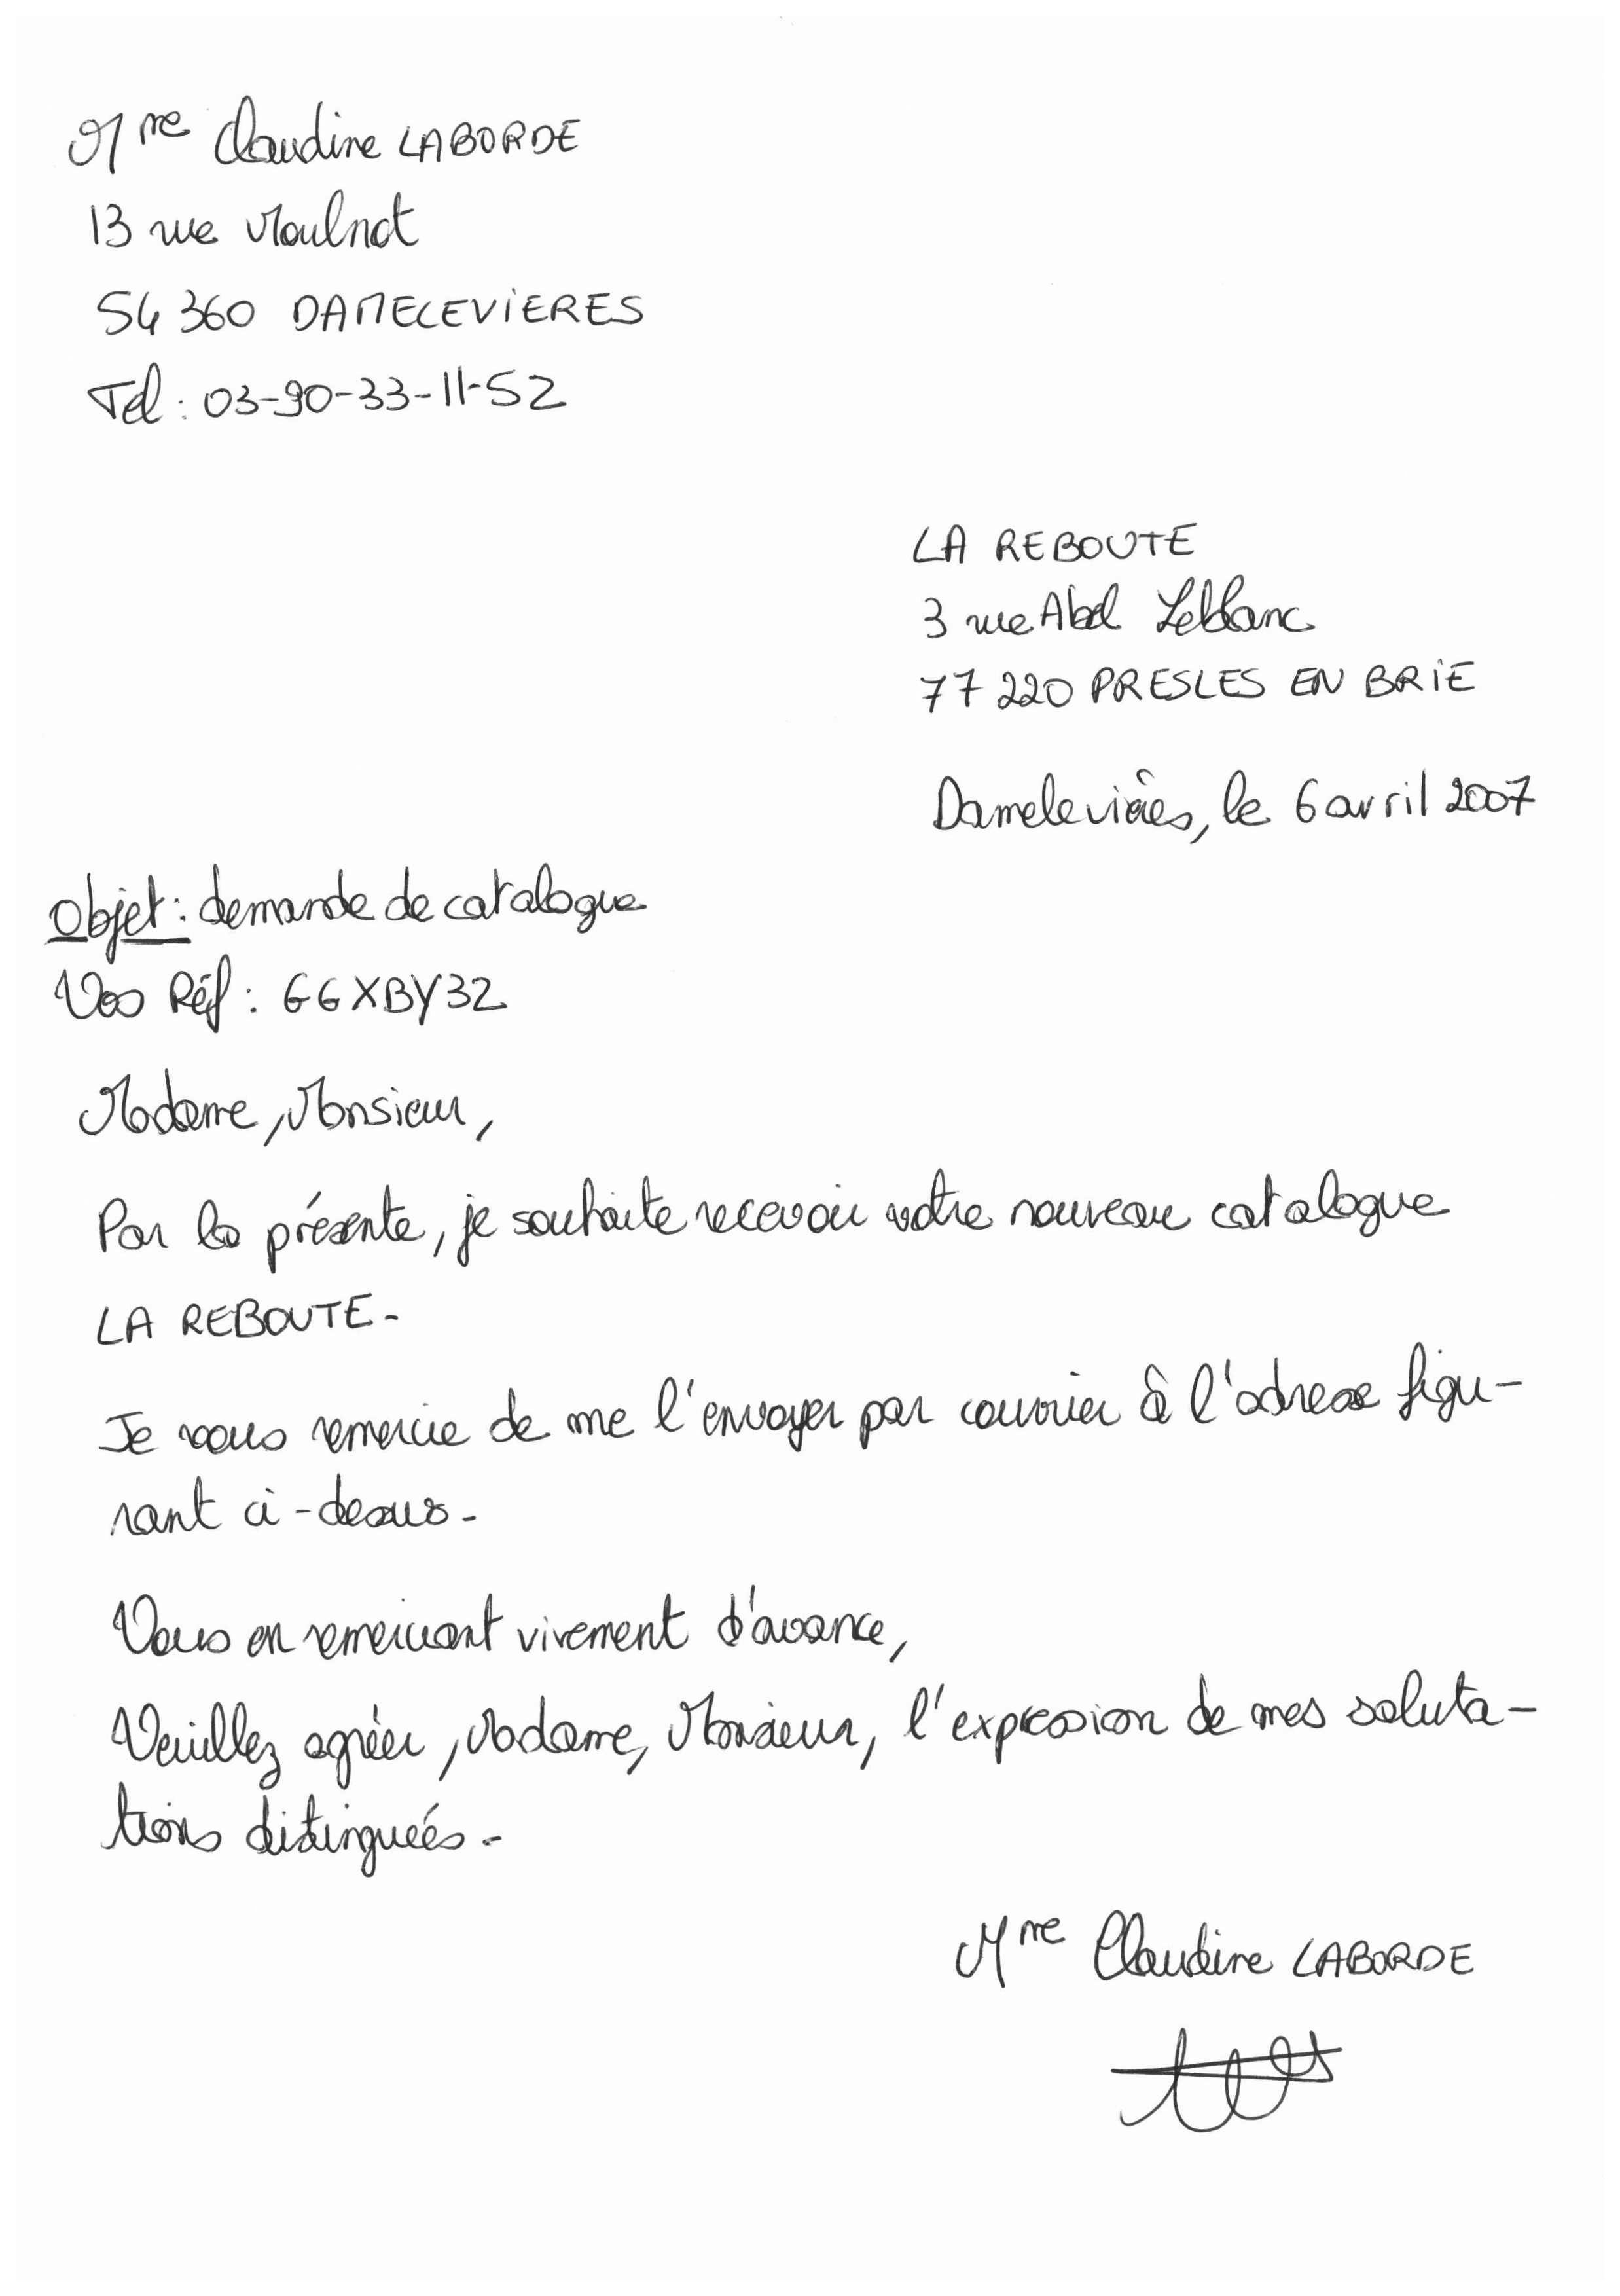 Mme Claudine LABORDE
13 rue Moulnot
54 360 DAMELEVIERES
Tel : 03-90-33-11-52
LA REBOUTE
3 rue Abel Leblanc
77 220 PRESLES EN BRIE
Damelevières, le 6 avril 2007
Objet : demande de catalogue
Vos Réf : GGXBY32
Madame, Monsieur,
Par la présente, je souhaite recevoir votre nouveau catalogue
LA REBOUTE.
Je vous remercie de me l'envoyer par courrier à l'adresse figu-
rant ci-dessus.
Vous en remerciant vivement d'avance,
Veuillez agréer, Madame, Monsieur, l'expression de mes saluta-
tions distinguées.
Mme Claudine LABORDE